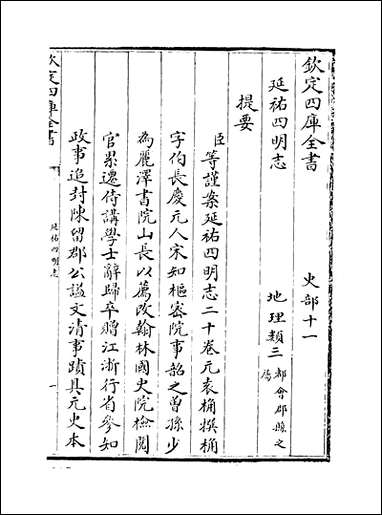 欽定四庫全書　史部十一
延祐四明志　地理類三都會郡縣之屬
提要
臣等謹案延祐四明志二十卷元袁桷撰桷
字伯長慶元人宋知樞密院事韶之曾孫少
為麗澤書院山長以薦改翰林國史院檢閱
官累遷侍講學士辭歸卒贈江浙行省參知
政事追封陳留郡公諡文清事蹟具元史本
欽定四庫全書
延祐四明志
一